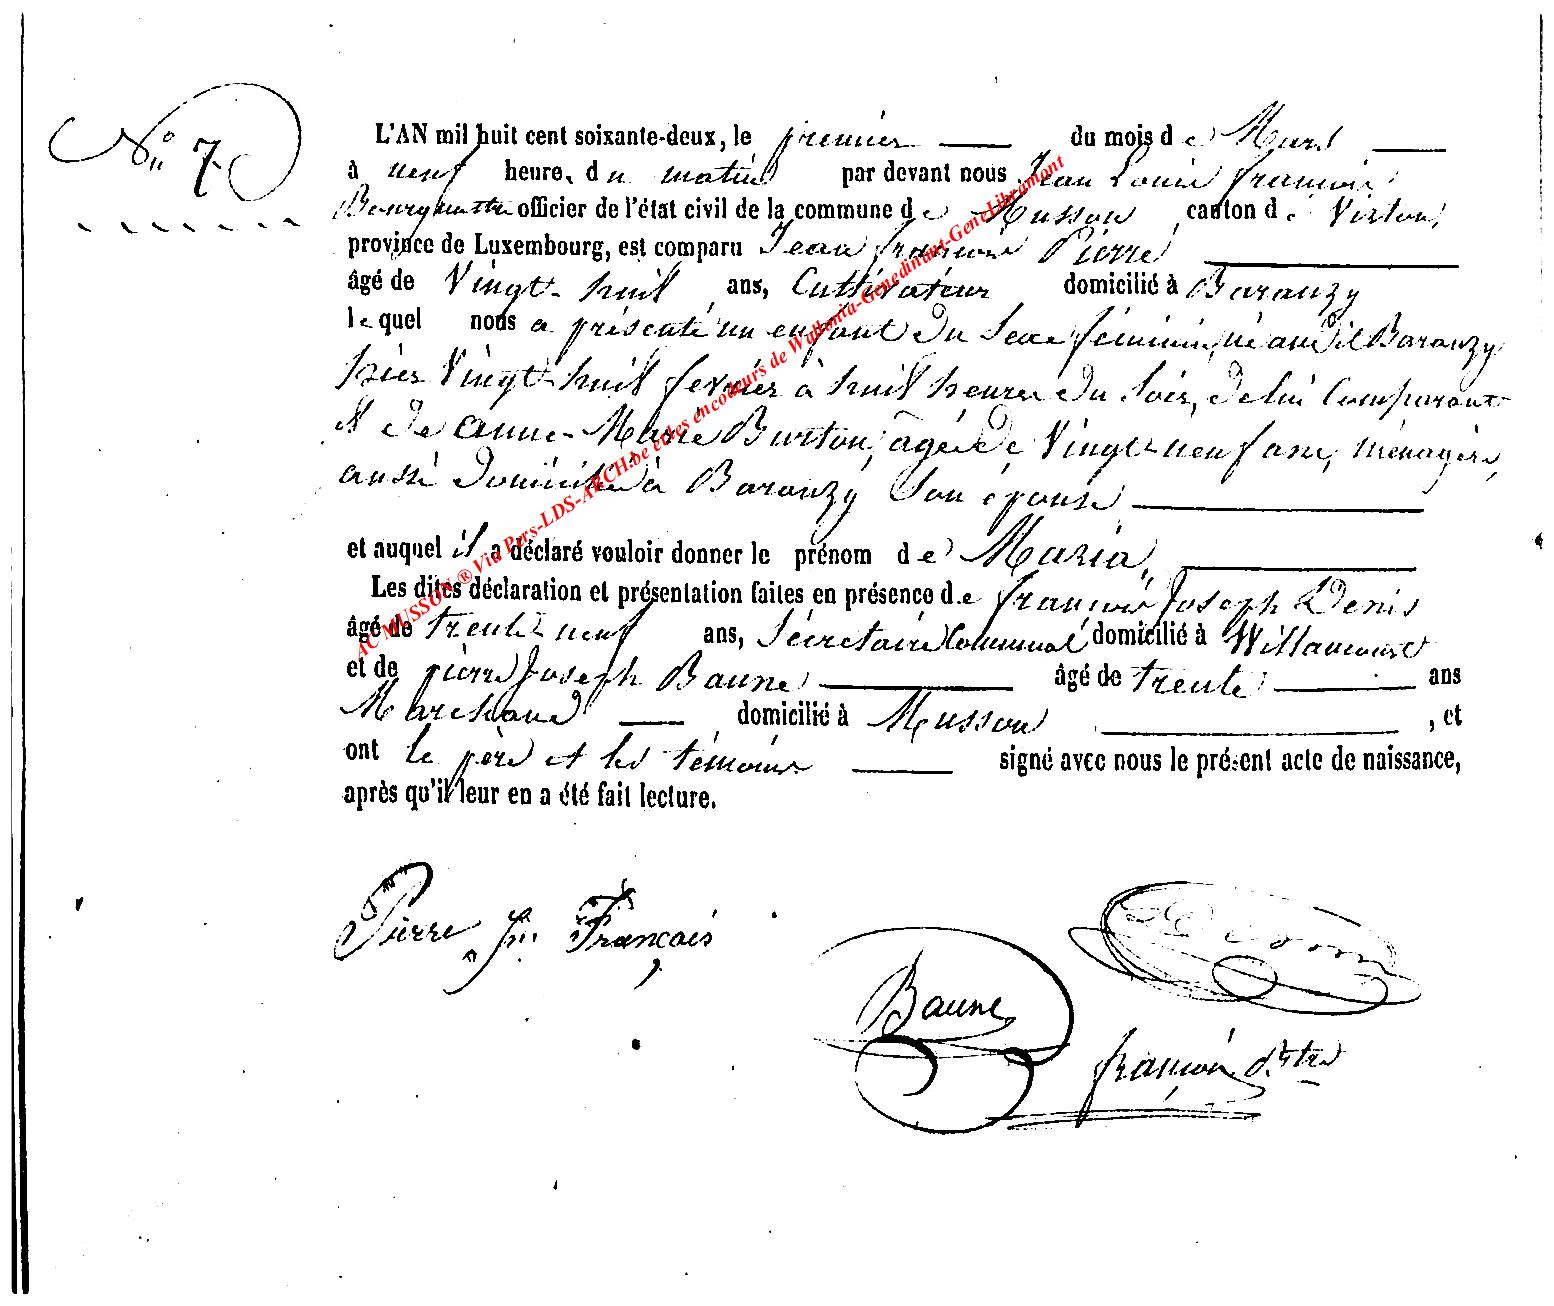 N° 7
L'AN mil huit cent soixante-deux, le premier du mois de Mars
à neuf heures du matin par devant nous Jean Louis françois
Bourgmestre officier de l'état civil de la commune de Musson canton de Virton,
province de Luxembourg, est comparu Jean françois Pierre
âgé de Vingt-huit ans, Cultivateur domicilié à Baranzy
lequel nous a présenté un enfant du Sexe féminin, né audit Baranzy
hier Vingt-huit fevrier à huit heures du Soir, de lui Comparant
et de anne-Marie Burton, agée de Vingt-neuf ans, ménagère,
aussi domiciliée à Baranzy Son épouse
et auquel il a déclaré vouloir donner le prénom de Maria,
Les dites déclaration et présentation faites en présence de françois Joseph Denis
âgé de trente-neuf ans, Sécretaire Communal domicilié à Willancourt
et de pierre Joseph Baune âgé de trente ans
Marchand domicilié à Musson , et
ont le père et les témoins signé avec nous le présent acte de naissance,
après qu'il leur en a été fait lecture.
Pierre Jn François
Baune
françois
ACMUSSON ® Via Pers-LDS-ARCH.be et les encodeurs de Wallonia-Genedinant-GeneLibramont